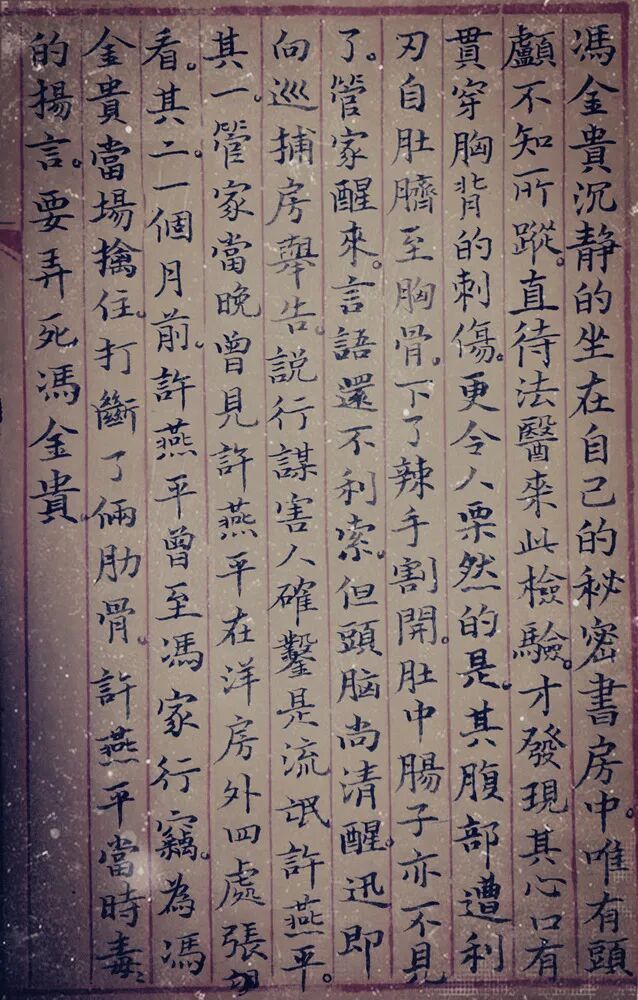 馮金貴沉静的坐在自己的秘密書房中。唯有頭
顱不知所蹤。直待法醫来此檢驗。才發現其心口有
貫穿胸背的刺傷。更令人栗然的是。其腹部遭利
刃自肚臍至胸骨。下了辣手割開。肚中腸子亦不見
了。管家醒來。言語還不利索。但頭脑尚清醒。迅即
向巡捕房舉告。説行謀害人確鑿是流氓許燕平。
其一。管家當晚曾見許燕平在洋房外四處張
看。其二。一個月前。許燕平曾至馮家行竊。為馮
金貴當場擒住。打斷了倆肋骨。許燕平當時毒
的揚言。要弄死馮金貴。